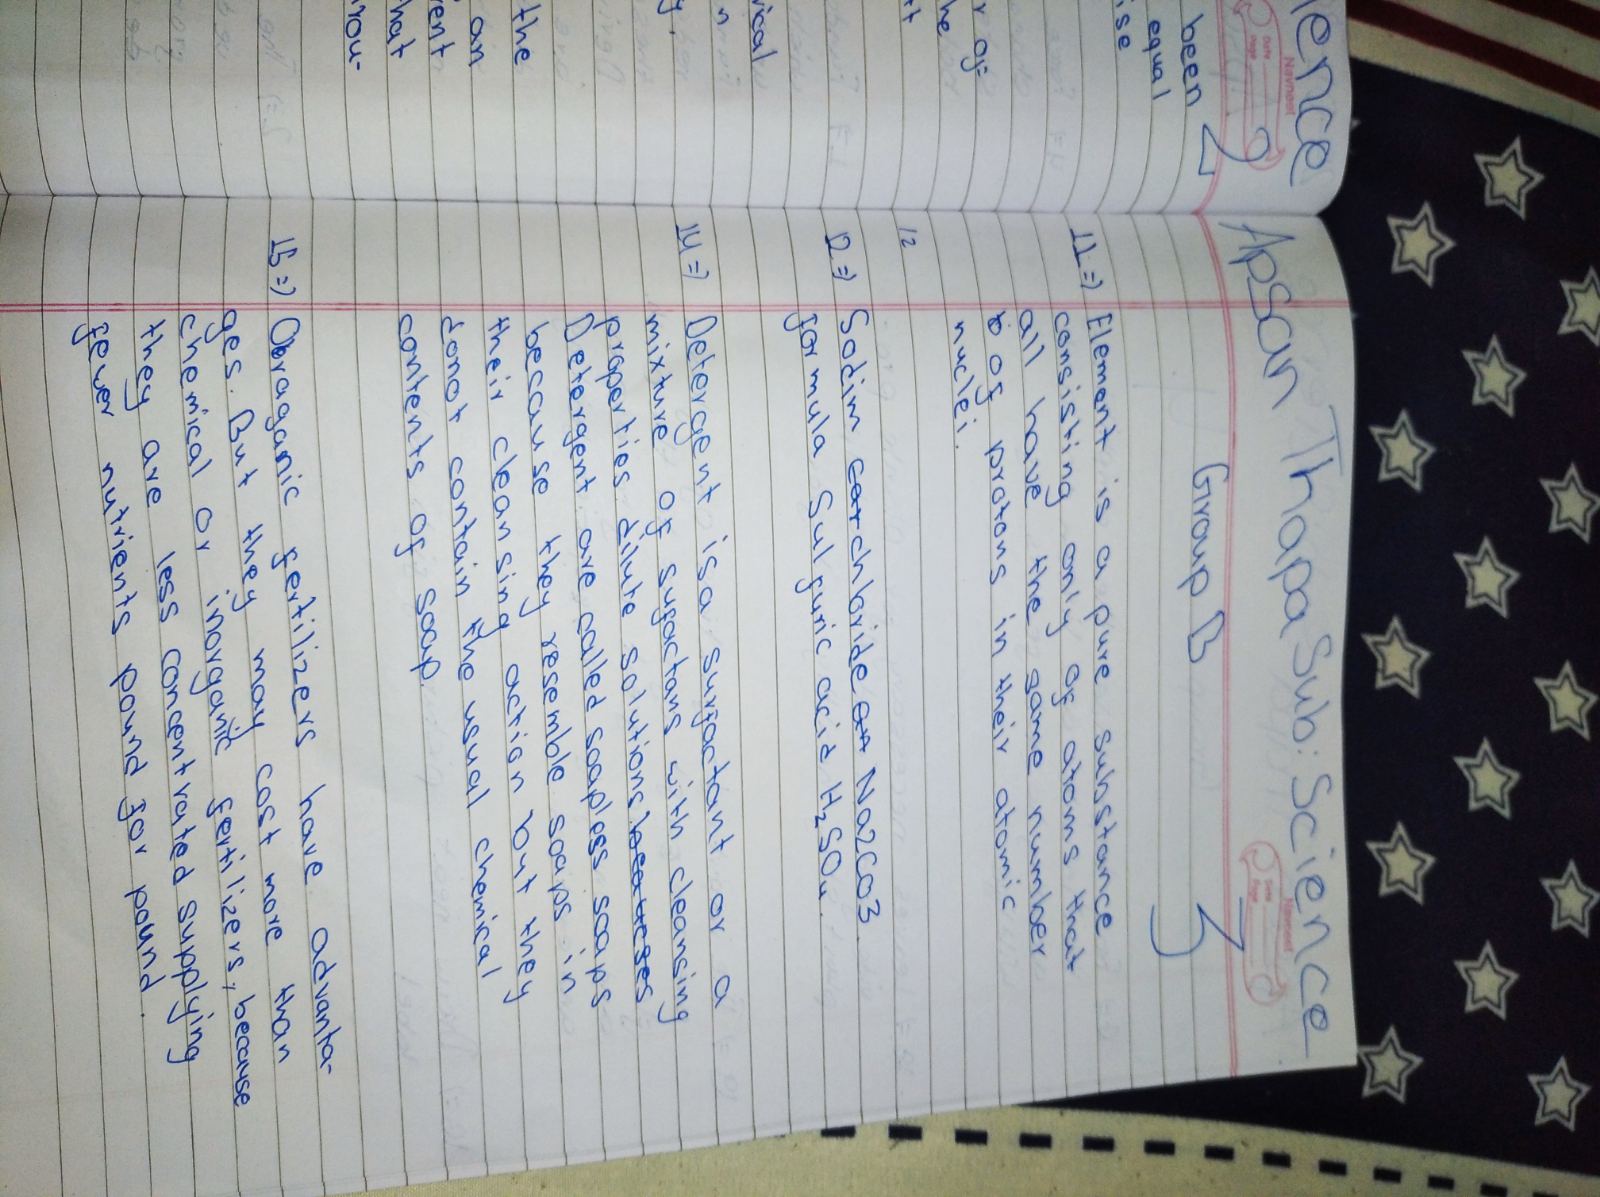 ence
Navneet
Date
Page
been
equal
ise
r of
he
tt
rical
n
y,
the
an
rent
hat
rou-
Apsan Thapa Sub: Science
Navneet
Date
Page
Group B
11 => Element is a pure substance
consisting only of atoms that
all have the same number
of protons in their atomic
nuclei.
12
12 => Sodim chloride Na2CO3
formula Sulfuric acid H2SO4.
14 => Detergent is a surfactant or a
mixture of sufactans with cleansing
properties dilute solutions
Detergent are called soapless soaps
because they resemble soaps in
their cleansing action but they
donot contain the usual chemical
contents of soap.
15 => Oraganic fertilizers have advanta-
ges. But they may cost more than
chemical or inorganic fertilizers, because
they are less concentrated supplying
fewer nutrients pound for pound.